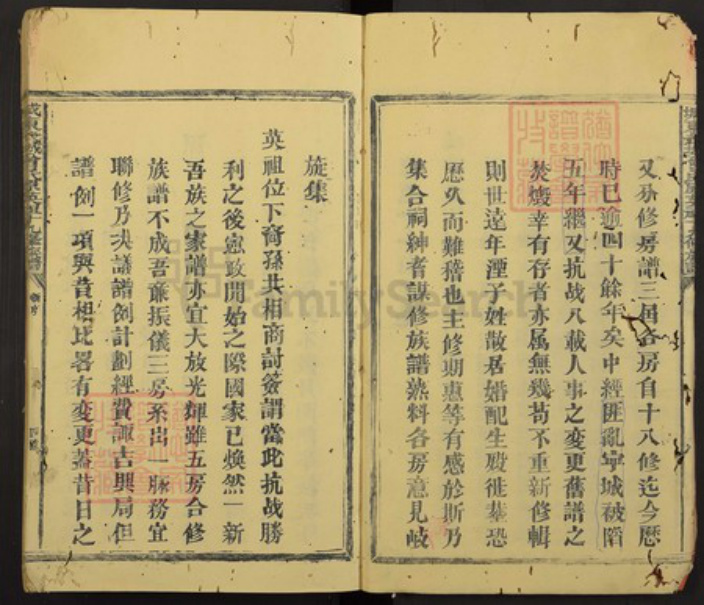 又分修房譜三届各房自十八修迄今歷
時已逾四十餘年矣中經匪亂寧城被陷
五年繼又抗战八載人事之変更舊譜之
焚燬幸有存者亦属無幾苟不重新修輯
則世遠年湮子姓散居婚配生殁徙塟恐
歷久而難稽也主修期惠等有感於斯乃
集合祠紳耆謀修族譜熟料各房意見岐
旋集
英祖位下裔孫共相商討簽謂當此抗战勝
利之後憲政開始之際國家已煥然一新
吾族之家譜亦宜大放光輝雖五房合修
族譜不成吾廉振儀三房系出一脉務宜
聯修乃决議譜例計劃經費諏吉興局但
譜例一項與昔相比畧有変更蓋昔日之
FamilySearch